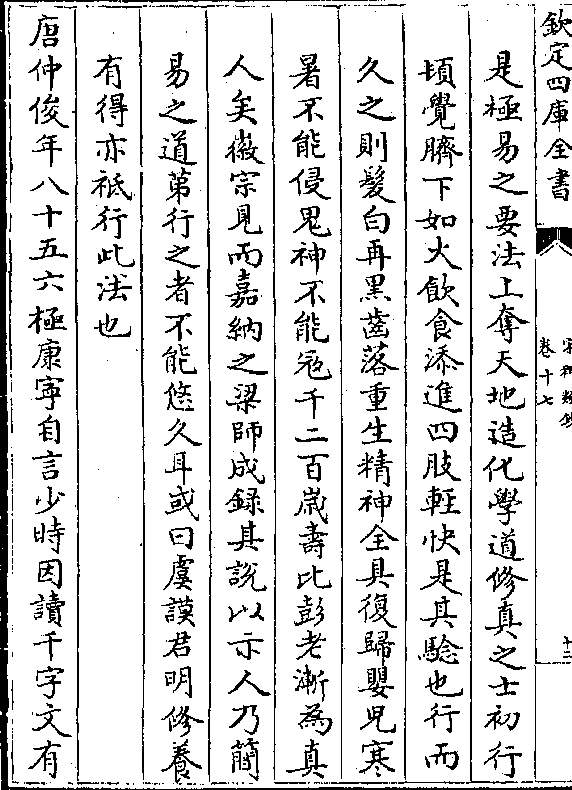 欽定四庫全書
宋稗類鈔
卷十七
十三
是極易之要法上奪天地造化學道修真之士初行
頃覺臍下如火飲食添進四肢輕快是其驗也行而
久之則髮白再黑齒落重生精神全具復歸嬰兒寒
暑不能侵鬼神不能寇千二百歲壽比彭老漸為真
人矣徽宗見而嘉納之梁師成錄其說以示人乃簡
易之道第行之者不能悠久耳或曰虞謨君明修養
有得亦祗行此法也
唐仲俊年八十五六極康寧自言少時因讀千字文有